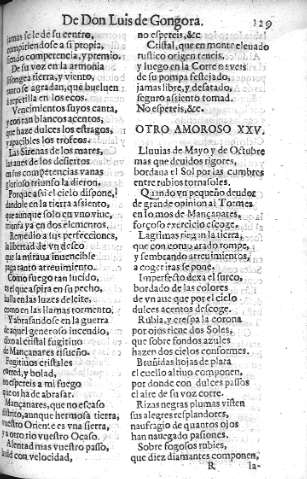 De Don Luis de Gongora. 129
jamas se le de su centro,
compitiendose a si propia,
siendo competencia, y premio.
De su voz en la armonia
tierra, y viento,
tanto se agradan, que bueluen
en los ecos.
Vencimientos suyos canta,
y con tan blancos acentos,
que haze dulces los estragos,
apacibles los trofeos.
Las Sirenas de los mares,
de los desiertos
en sus competencias vanas
glorioso triunfo la dieron.
Porque assi el cielo dispone,
dandole en la tierra assiento,
que aunque solo en vno viue,
triunfa ya en dos elementos.
Remedio a sus perfecciones,
libertad de vn deseo
que la miraua inuencible
para tanto atreuimiento.
Como fuego tan lucido,
el que aspira en su pecho,
halla en las luzes de
como en las llamas tormento.
Y abrasandose en la guerra
de aquel generoso incendio,
dixo al cristal fugitiuo
de Mançanares risueño.
Fugitiuos cristales
corred, y bolad,
no espereis a mi fuego
que os ha de abrasar.
Mançanares, que no acaso
distrito, aunque hermosa tierra,
vuestro Oriente es vna sierra,
y a otro rio vuestro Ocaso.
Alentad mas vuestro passo,
id con velocidad,
no espereis, &c.
Cristal, que en monte eleuado
rustico origen teneis,
y luego en la Corte os veis
de su pompa festejado,
jamas libre, y desatado,
seguro assiento tomad.
No espereis, &c.
OTRO AMOROSO XXV.
Lluuias de Mayo y de Octubre
mas que deuidos rigores,
bordaua el Sol por las cumbres
entre rubios tornasoles.
Quando vn pequeño deudor
de grande opinion al Tormes
en lomos de Mançanares,
forçoso exercicio escoge.
Lagrimas riegan la tierra,
que con corno arado rompe,
y sembrando atreuimientos,
a coger iras se pone.
Imperfecto dexa el surco,
bordado de las colores
de vn aue que por el cielo
dulces acentos descoge.
Rubia, y crespa la corona
por ojos tiene dos Soles,
que sobre fondos azules
hazen dos cielos conformes.
Bruñidas hojas de plata
el cuello altiuo componen,
por donde con dulces passos
el aire de su voz corre.
Rizas negras plumas visten
sus alegres resplandores,
naufragio de quantos ojos
han nauegado passiones.
Sobre fogosos rubies,
que diez diamantes componen,
R la-